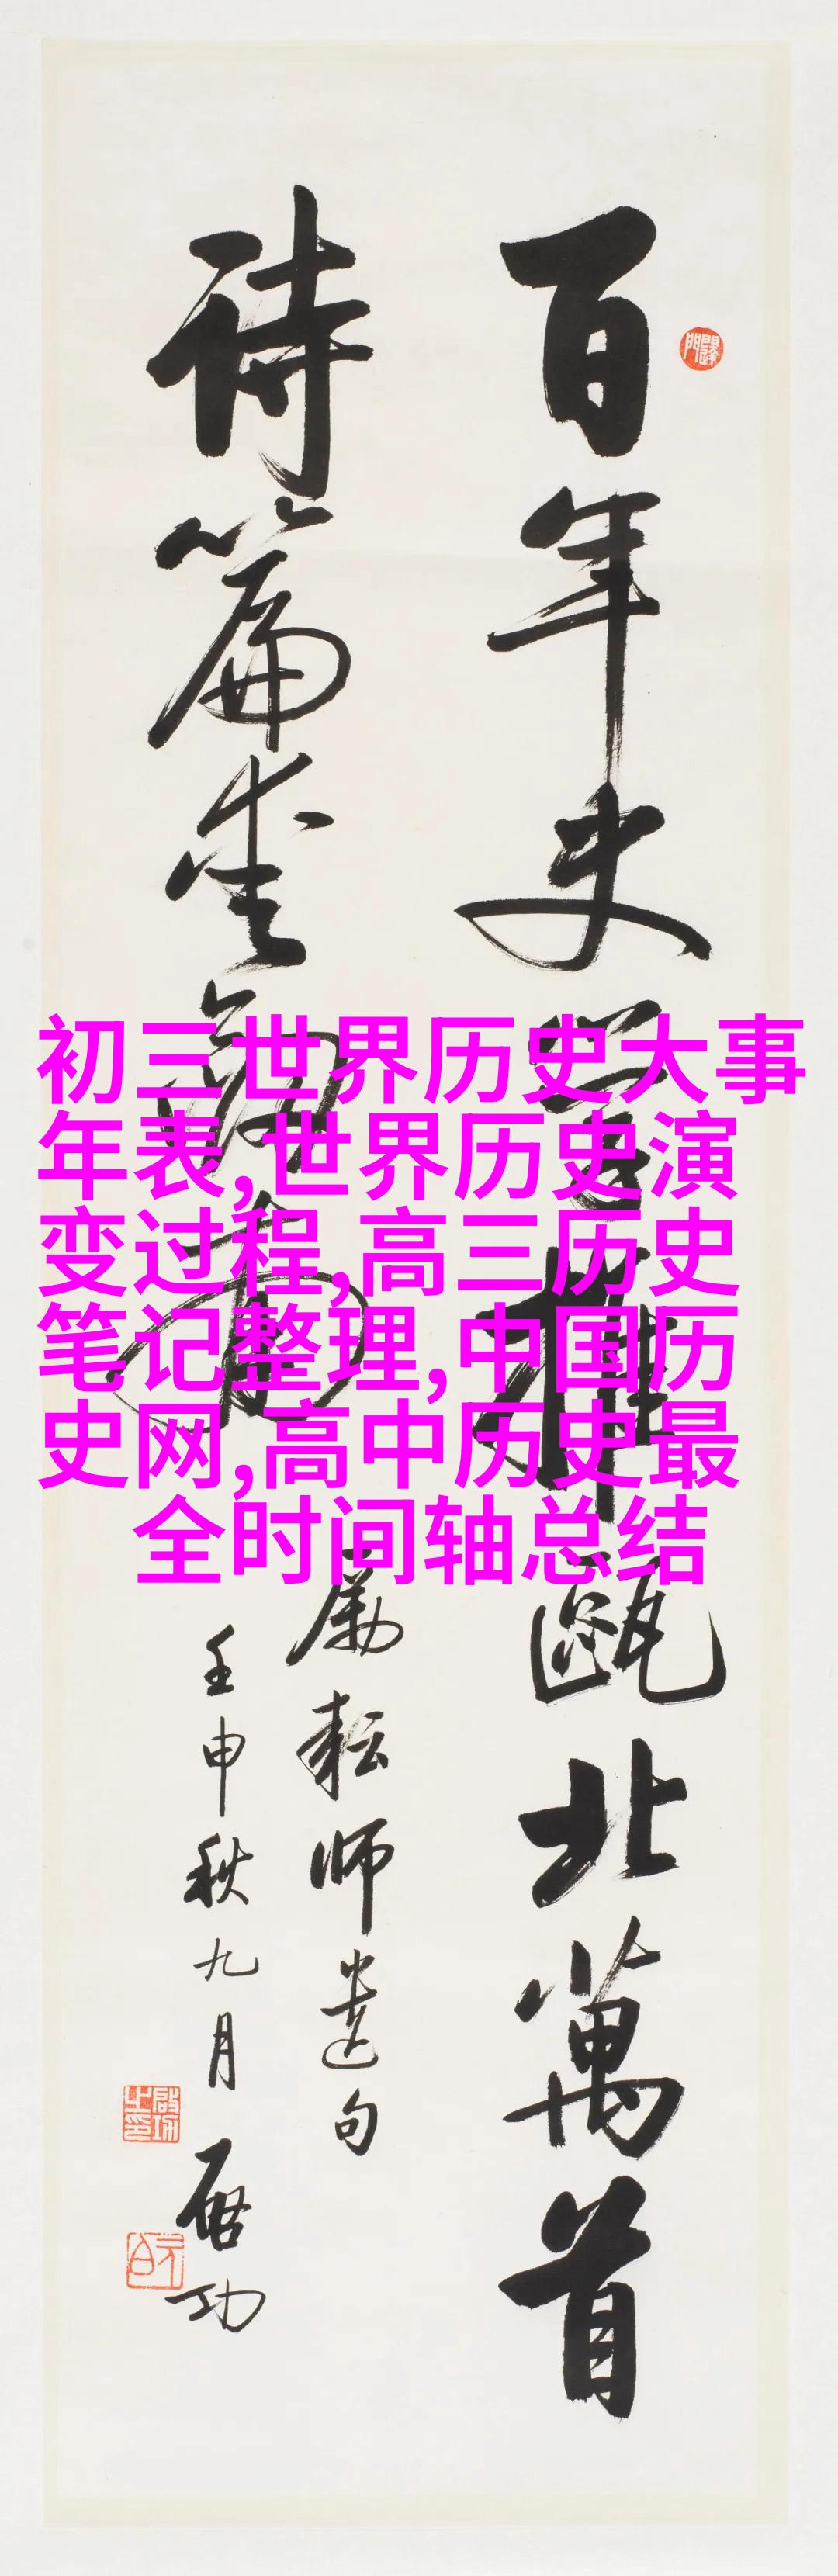 百年史學推甌北萬首
詩篇愛劍南
勵耘師遺句
壬申秋九月
启功
初三世界历史大事
年表,世界历史演
变过程,高三历史
笔记整理,中国历
史网,高中历史最
全时间轴总结